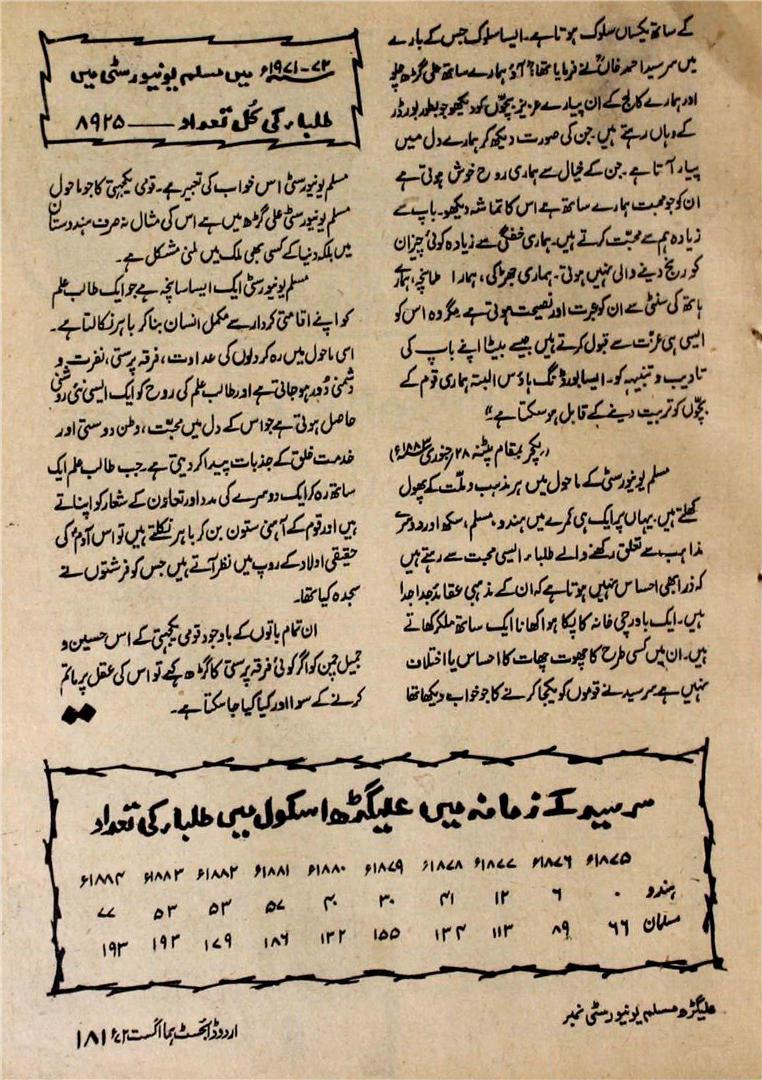 کے ساتھ یکساں سلوک ہوتا ہے۔ ایسا سلوک جس کے بارے
میں سرسید احمد خاںؒ نے فرمایا تھا؟ آؤ ہمارے ساتھ علی گڑھ چلو
اور ہمارے کالج کے ان پیارے عزیز بچّوں کو دیکھو جو بطور بورڈر
کے وہاں رہتے ہیں۔ جن کی صورت دیکھ کر ہمارے دل میں
پیار آتا ہے۔ جن کے خیال سے ہماری روح خوش ہوتی ہے
ان کو جو محبت ہمارے ساتھ ہے اس کا تماشہ دیکھو۔ باپ سے
زیادہ ہم سے محبّت کرتے ہیں۔ ہماری خفگی سے زیادہ کوئی چیز ان
کو رنج دینے والی نہیں ہوتی۔ ہماری جھڑکی، ہمارا طمانچہ، ہمارے
ہاتھ کی سنٹی سے ان کو عبرت اور نصیحت ہوتی ہے مگر وہ اس کو
ایسی ہی عزّت سے قبول کرتے ہیں جیسے بیٹا اپنے باپ کی
تادیب و تنبیہہ کو۔ ایسا بورڈنگ ہاؤس البتہ ہماری قوم کے
بچّوں کو تربیت دینے کے قابل ہو سکتا ہے۔"
(لیکچر بمقام پٹنہ ۲۸ جنوری ۱۸۸۳ء)
مسلم یونیورسٹی کے ماحول میں ہر مذہب و ملّت کے پھول
کھلتے ہیں۔ یہاں پر ایک ہی کمرے میں ہندو، مسلم، سکھ اور دوسرے
مذاہب سے تعلق رکھنے والے طلباء ایسی محبت سے رہتے ہیں
کہ ذرا بھی احساس نہیں ہوتا ہے کہ ان کے مذہبی عقائد جدا جدا
ہیں۔ ایک باورچی خانہ کا پکا ہوا کھانا ایک ساتھ ملکر کھاتے
ہیں۔ ان میں کسی طرح کا چھوت چھات کا احساس یا اختلاف
نہیں ہے سرسید نے قوموں کو یکجا کرنے کا جو خواب دیکھا تھا
۷۲-۱۹۷۱ء میں مسلم یونیورسٹی میں
طلباء کی کُل تعداد —— ۸۹۲۵
مسلم یونیورسٹی اس خواب کی تعبیر ہے۔ قومی یکجہتی کا جو ماحول
مسلم یونیورسٹی علی گڑھ میں ہے اس کی مثال نہ صرف ہندوستان
میں بلکہ دنیا کے کسی بھی ملک میں ملنی مشکل ہے۔
مسلم یونیورسٹی ایک ایسا سانچہ ہے جو ایک طالب علم
کو اپنے اقامتی کردار سے مکمل انسان بنا کر باہر نکالتا ہے۔
اسی ماحول میں رہ کر دلوں کی عداوت، فرقہ پرستی، نفرت و
دشمنی دُور ہو جاتی ہے اور طالب علم کی روح کو ایک ایسی نئی روشنی
حاصل ہوتی ہے جو اس کے دل میں محبّت، وطن دوستی اور
خدمت خلق کے جذبات پیدا کر دیتی ہے۔ جب طالب علم ایک
ساتھ رہ کر ایک دوسرے کی مدد اور تعاون کے شعار کو اپناتے
ہیں اور قوم کے آہنی ستون بن کر باہر نکلتے ہیں تو اس آدمؑ کی
حقیقی اولاد کے روپ میں نظر آتے ہیں جس کو فرشتوں نے
سجدہ کیا تھا۔
ان تمام باتوں کے باوجود قومی یکجہتی کے اس حسین و
جمیل چمن کو اگر کوئی فرقہ پرستی کا گڑھ کہے تو اس کی عقل پر ماتم
کرنے کے سوا اور کیا کیا جا سکتا ہے۔
سرسید کے زمانہ میں علیگڑھ اسکول میں طلباء کی تعداد
۱۸۷۵ء ۱۸۷۶ء ۱۸۷۷ء ۱۸۷۸ء ۱۸۷۹ء ۱۸۸۰ء ۱۸۸۱ء ۱۸۸۲ء ۱۸۸۳ء ۱۸۸۴ء
ہندو ۰ ۶ ۱۲ ۴۱ ۳۰ ۴۰ ۵۷ ۵۳ ۵۳ ۷۷
مسلمان ۶۶ ۸۹ ۱۱۳ ۱۳۴ ۱۵۵ ۱۳۲ ۱۸۶ ۱۷۹ ۱۹۳ ۱۹۳
علیگڑھ مسلم یونیورسٹی نمبر
اردو ڈائجسٹ ہما اگست ۷۲ء ۱۸۱